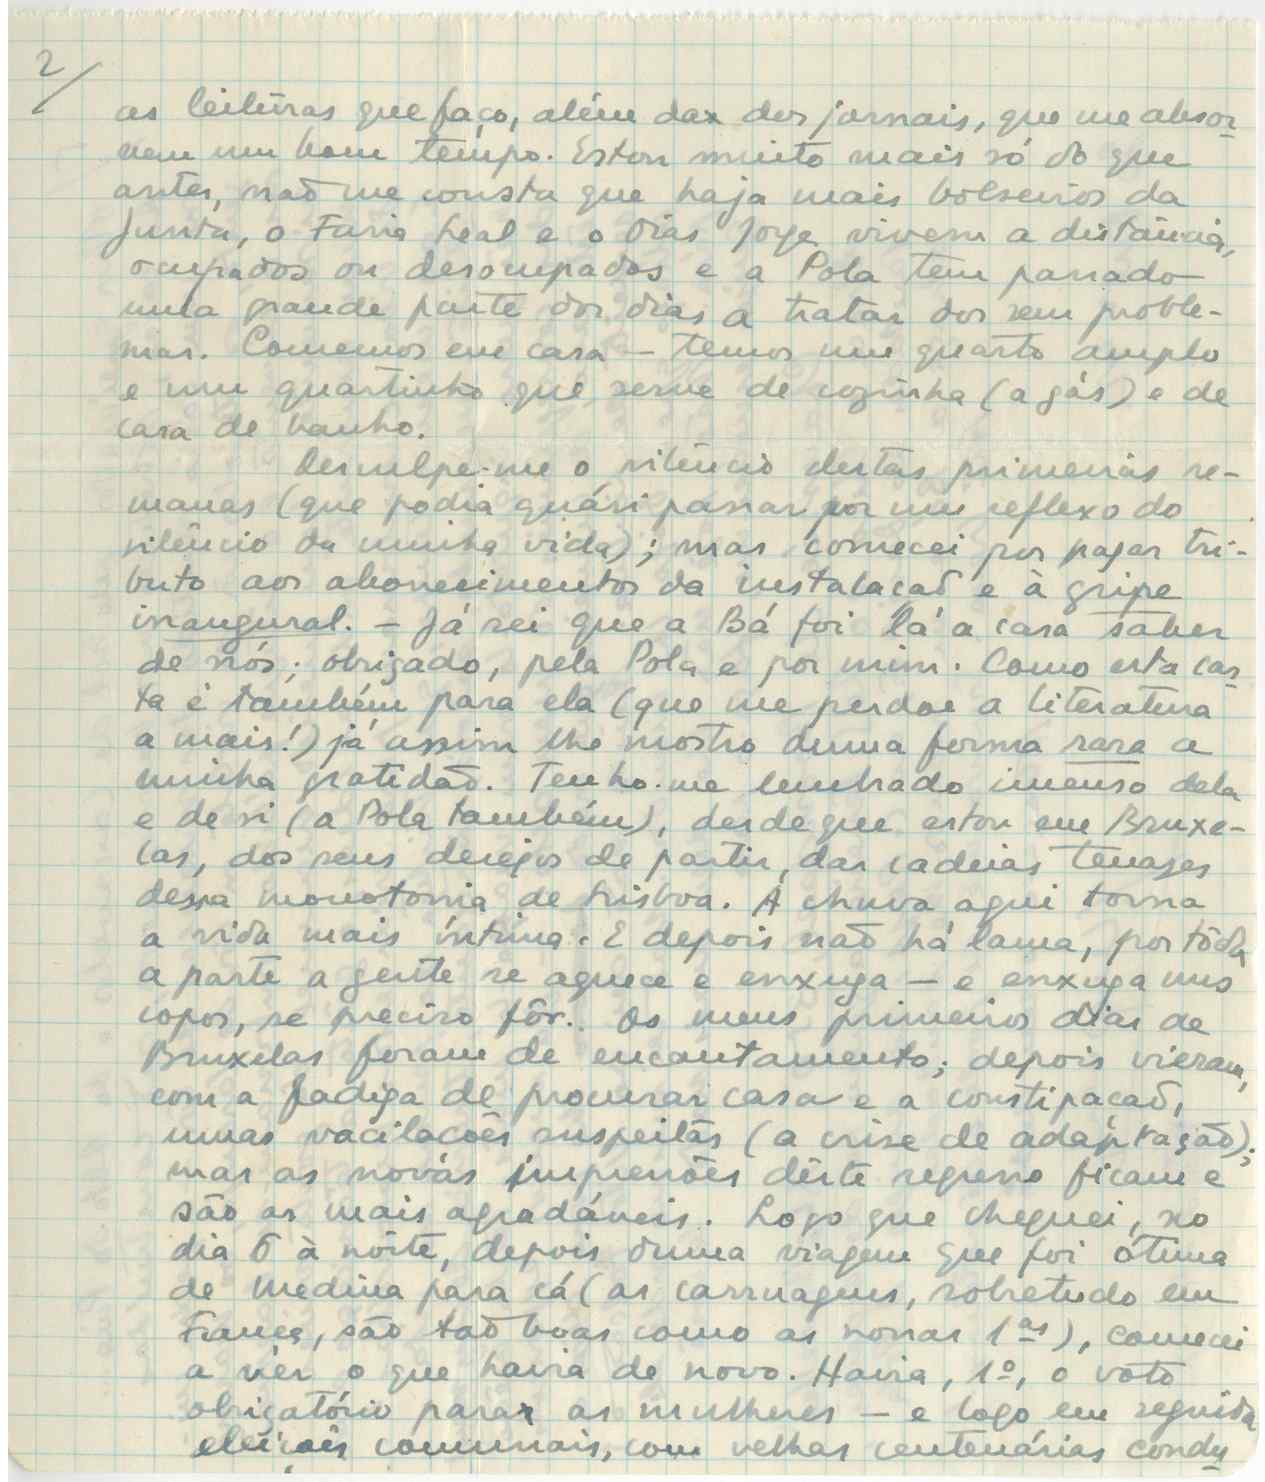 2/
as leituras que faço, além das dos jornais, que me absor-
vem um bom tempo. Estou muito mais só do que
antes, naõ me consta que haja mais bolseiros da
Junta, o Faria Leal e o Dias Jorge vivem a distância,
ocupados ou desocupados e a Pola tem passado
uma grande parte dos dias a tratar dos seus proble-
mas. Comemos em casa — temos um quarto amplo
e um quartinho que serve de cozinha (a gás) e de
casa de banho.
Desculpe-me o silêncio destas primeiras se-
manas (que podia quási passar por um reflexo do
silêncio da minha vida); mas comecei por pagar tri-
buto aos aborrecimentos da instalacaõ e à gripe
inaugural. — Já sei que a Bá foi lá a casa saber
de nós; obrigado, pela Pola e por mim. Como esta car-
ta é também para ela (que me perdoe a literatura
a mais!) já assim lhe mostro duma forma rara a
minha gratidaõ. Tenho-me lembrado imenso dela
e de si (a Pola também), desde que estou em Bruxe-
las, dos seus desejos de partir, das cadeias tenazes
dessa monotonia de Lisboa. A chuva aqui torna
a vida mais íntima. E depois naõ há lama, por tôda
a parte a gente se aquece e enxuga — e enxuga uns
copos, se preciso fôr. Os meus primeiros dias de
Bruxelas foram de encantamento; depois vieram,
com a fadiga de procurar casa e a constipaçaõ,
umas vacilacoẽs suspeitas (a crise de adaptação);
mas as novas impressões dêste regresso ficam e
são as mais agradáveis. Logo que cheguei, no
dia 6 à noite, depois duma viagem que foi óptima
de Medina para cá (as carruagens, sobretudo em
França, são taõ boas como as nossas 1as), comecei
a vêr o que havia de novo. Havia, 1º, o voto
obrigatório para as mulheres — e logo em seguida
eleiçoẽs comunais, com velhas centenárias condu-